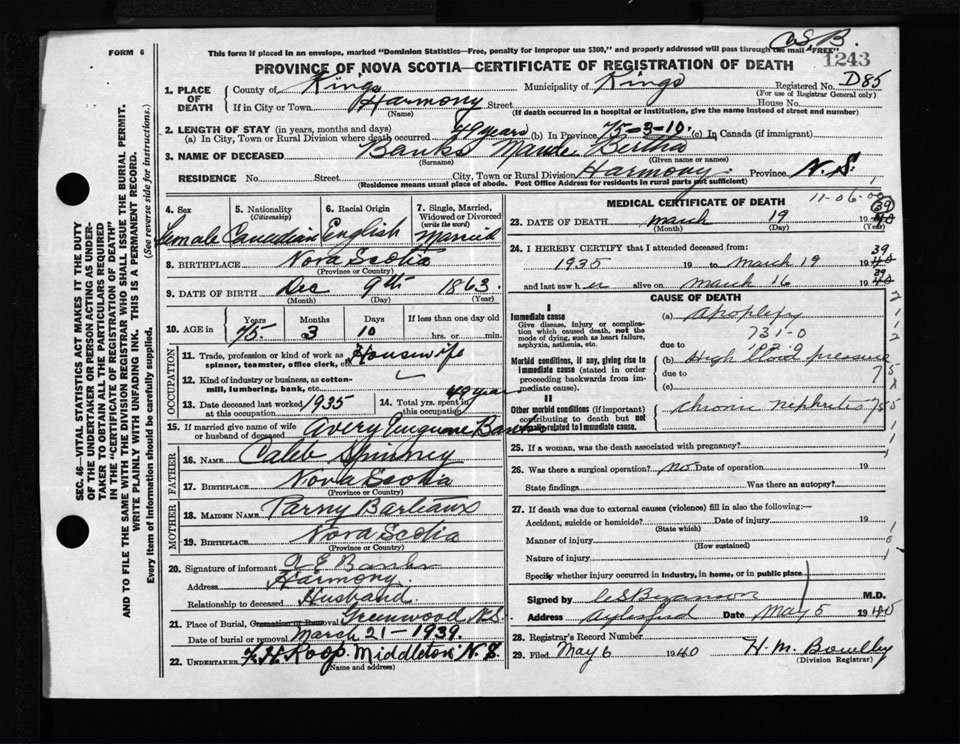 FORM 6
This form if placed in an envelope, marked "Dominion Statistics—Free, penalty for improper use $300," and properly addressed will pass through the mail "FREE"
C.S.B.
1243
PROVINCE OF NOVA SCOTIA—CERTIFICATE OF REGISTRATION OF DEATH
1. PLACE OF DEATH County of Kings Municipality of Kings Registered No. D85
(For use of Registrar General only)
If in City or Town Harmony Street House No.
(Name) (If death occurred in a hospital or institution, give the name instead of street and number)
2. LENGTH OF STAY (in years, months and days)
(a) In City, Town or Rural Division where death occurred 49 years (b) In Province 75-3-10. (c) In Canada (if immigrant)
3. NAME OF DECEASED Banks Maude Bertha
(Surname) (Given name or names)
RESIDENCE No. Street City, Town or Rural Division Harmony Province N.S.
(Residence means usual place of abode. Post Office Address for residents in rural parts not sufficient)
4. Sex 5. Nationality (Citizenship) 6. Racial Origin 7. Single, Married, Widowed or Divorced (write the word)
Female Canadian English Married
8. BIRTHPLACE Nova Scotia
(Province or Country)
9. DATE OF BIRTH Dec 9th 1863
(Month) (Day) (Year)
10. AGE in Years Months Days If less than one day old
75 3 10 hrs. or min.
OCCUPATION
11. Trade, profession or kind of work as spinner, teamster, office clerk, etc. Housewife
12. Kind of industry or business, as cotton-mill, lumbering, bank, etc.
13. Date deceased last worked at this occupation 1935 14. Total yrs. spent in this occupation 49 years
15. If married give name of wife or husband of deceased Avery Banks
FATHER
16. NAME Caleb Spinney
17. BIRTHPLACE Nova Scotia
(Province or Country)
MOTHER
18. MAIDEN NAME Parny Barteaux
19. BIRTHPLACE Nova Scotia
(Province or Country)
20. Signature of informant A E Banks
Address Harmony
Relationship to deceased Husband
21. Place of Burial, Cremation or Removal Greenwood, N.S.
Date of burial or removal March 21-1939.
22. UNDERTAKER F. H. Roop. Middleton N.S.
(Name and address)
MEDICAL CERTIFICATE OF DEATH 11-06-0
23. DATE OF DEATH March 19 39
(Month) (Day) 1940 (Year)
24. I HEREBY CERTIFY that I attended deceased from:
1935 19 to March 19 1940 39
and last saw her alive on March 16 1940 39
CAUSE OF DEATH
I
Immediate cause
Give disease, injury or complication which caused death, not the mode of dying, such as heart failure, asphyxia, asthenia, etc.
(a) Apoplexy
731-0
due to
Morbid conditions, if any, giving rise to immediate cause (stated in order proceeding backwards from immediate cause).
(b) High blood pressure
due to
(c)
II
Other morbid conditions (if important) contributing to death but not causally related to immediate cause.
Chronic nephritis
25. If a woman, was the death associated with pregnancy?
26. Was there a surgical operation? no Date of operation 19
State findings Was there an autopsy?
27. If death was due to external causes (violence) fill in also the following:—
Accident, suicide or homicide? Date of injury 19
(State which)
Manner of injury
(How sustained)
Nature of injury
Specify whether injury occurred in industry, in home, or in public place
Signed by C S Bezanson M.D.
Address Aylesford Date May 5 1940
28. Registrar's Record Number
29. Filed May 6 1940 H. M. Bowlby
(Division Registrar)
SEC. 46—VITAL STATISTICS ACT MAKES IT THE DUTY
OF THE UNDERTAKER OR PERSON ACTING AS UNDER-
TAKER TO OBTAIN ALL THE PARTICULARS REQUIRED
IN THE "CERTIFICATE OF REGISTRATION OF DEATH"
AND TO FILE THE SAME WITH THE DIVISION REGISTRAR WHO SHALL ISSUE THE BURIAL PERMIT.
WRITE PLAINLY WITH UNFADING INK. THIS IS A PERMANENT RECORD.
Every item of information should be carefully supplied. (See reverse side for instructions.)